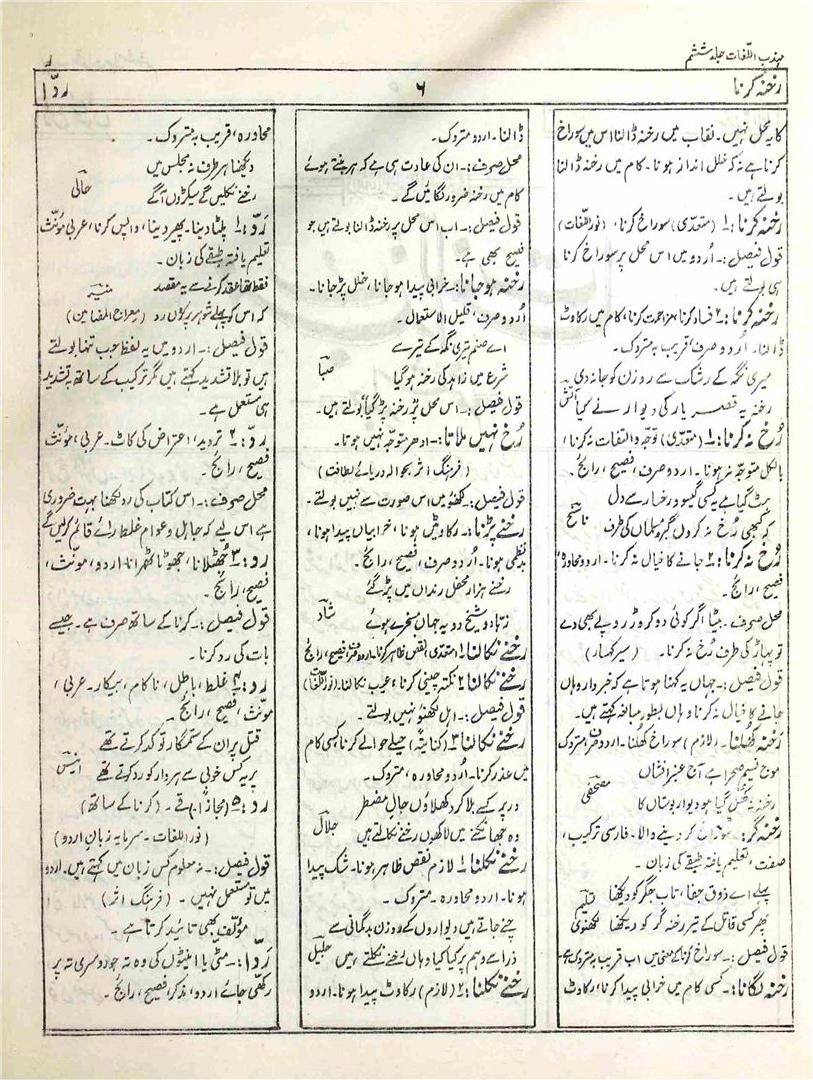 مہذب اللّغات جلد ششم
رخنہ کرنا
۶
ردّا
کا یہ محل نہیں۔ نقاب میں رخنہ ڈالنا اس میں سوراخ
کرنا ہے نہ کہ خلل انداز ہونا۔ کام میں رخنہ ڈالنا
بولتے ہیں۔
رخنہ کرنا:۔ ۱ (متعدّی) سوراخ کرنا، (نور اللّغات)
قول فیصل:۔ اُردو میں اس محل پر سوراخ کرنا
ہی بولتے ہیں۔
رخنہ کرنا:۔ ۲ فساد کرنا، مزاحمت کرنا، کام میں رکاوٹ
ڈالنا۔ اُردو صرف، قریب بہ متروک۔
میری نگہ کے رشک سے روزن کو چاندی یہ
رخنہ یہ قصر یار کی دیوار نے کیا آتش
رُخ نہ کرنا:۔ ۱ (متعدّی) توجّہ والتفات نہ کرنا،
بالکل متوجّہ نہ ہونا۔ اردو صرف، فصیح، رائج۔
ہٹ گیا ہے یکسی گیسو و رخسار سے دل
کہ کبھی رُخ نہ کروں گبر و مسلماں کی طرف ناسخ
رُخ نہ کرنا:۔ ۲ جانے کا خیال نہ کرنا۔ اردو محاورہ
فصیح، رائج۔
محل صرف:۔ بیٹا اگر کوئی دو کروڑ روپے بھی دے
تو پہاڑ کی طرف رُخ نہ کرنا۔ (سیر کہسار)
قول فیصل:۔ جہاں یہ کہنا ہوتا ہے کہ خبردار وہاں
جانے کا خیال نہ کرنا وہاں بطور مبالغہ کہتے ہیں۔
رخنہ کُھلنا:۔ (لازم) سوراخ کھلنا۔ اردو صرف متروک
موج نسیم صحرا ہے آج عنبر افشاں
رخنہ نہ کُھل گیا ہو دیوار بوستاں کا مصحفی
رخنہ گر:۔ سوراخ کر دینے والا۔ فارسی ترکیب،
صفت، تعلیم یافتہ طبقے کی زبان۔
پہلے اے ذوق جفا، تاب جگر کو دیکھنا
پھر کسی قاتل کے تیر رخنہ گر کو دیکھنا لکھنوی
قول فیصل:۔ سوراخ کرنا کے معنی میں اب قریب بہ متروک ہے
رخنہ لگانا:۔ کسی کام میں خرابی پیدا کرنا، رکاوٹ
ڈالنا۔ اردو متروک۔
محل صرف:۔ ان کی عادت ہی ہے کہ ہر بنتے ہوئے
کام میں رخنہ ضرور لگائیں گے۔
قول فیصل:۔ اب اس محل پر رخنہ ڈالنا بولتے ہیں جو
فصیح بھی ہے۔
رخنہ ہو جانا:۔ خرابی پیدا ہو جانا، خلل پڑ جانا۔
اُردو صرف، قلیل الاستعمال۔
اے صنم تیری نگہ کے تیر سے
شرع میں زاہد کی رخنہ ہو گیا صبا
قول فیصل:۔ اس محل پر رخنہ پڑ گیا بولتے ہیں۔
رُخ نہیں ملاتا:۔ ادھر متوجّہ نہیں ہوتا۔
(فرہنگ اثر بحوالہ دریائے لطافت)
قول فیصل:۔ لکھنؤ میں اس صورت سے نہیں بولتے۔
رخنے پڑنا:۔ رکاوٹیں ہونا، خرابیاں پیدا ہونا،
بدنظمی ہونا۔ اُردو صرف، فصیح، رائج۔
رخنے ہزار محفل رنداں میں پڑ گئے
زہاد و شیخ دو یہ جہاں سفرے ہوئے شاد
رخنے نکالنا:۔ ۱ متعدی نقص ظاہر کرنا۔ اردو صرف فصیح، رائج
رخنے نکالنا:۔ ۲ نکتہ چینی کرنا، عیب نکالنا۔ (نور اللغات)
قول فیصل:۔ اہل لکھنؤ نہیں بولتے۔
رخنے نکالنا:۔ ۳ (کنایۃً) حیلے حوالے کرنا، کسی کام
میں عذر کرنا۔ اُردو محاورہ، متروک۔
در پر کسے بلا کر دکھلاؤں حال مضطر
وہ جھانکنے میں لاکھوں رخنے نکالتے ہیں جلال
رخنے نکلنا:۔ ۱ لازم نقص ظاہر ہونا۔ شک پیدا
ہونا۔ اردو محاورہ۔ متروک۔
چنے جاتے ہیں دیواروں کے روزن بدگمانی سے
ذرا سے وہم پر کیا کیا وہاں رخنے نکلتے ہیں جلیل
رخنے نکلنا:۔ ۲ (لازم) رکاوٹ پیدا ہونا۔ اردو
محاورہ، قریب بہ متروک۔
دکھنا ہر طرف نہ مجلس میں
رخنے نکلیں گے سیکڑوں آگے حالی
رَدّ:۔ ۱ پلٹا دینا۔ پھیر دینا، واپس کرنا، عربی مؤنث
تعلیم یافتہ طبقے کی زبان۔
فقط تھا عقد کرنے سے یہ مقصد منیر
کہ اس کو پہلے شوہر پر کروں رد (معراج المضامین)
قول فیصل:۔ اردو میں یہ لفظ جب تنہا بولتے
ہیں تو بلا تشدید کہتے ہیں مگر ترکیب کے ساتھ بہ تشدید
ہی مستعمل ہے۔
رد:۔ ۲ تردید، اعتراض کی کاٹ۔ عربی، مؤنث
فصیح، رائج۔
محل صرف:۔ اس کتاب کی رد لکھنا بہت ضروری
ہے اس لیے کہ جاہل و عوام غلط رائے قائم کر لیں گے
رد:۔ ۳ جُھٹلانا، جھوٹا ٹھہرانا۔ اردو، مؤنث،
فصیح، رائج۔
قول فیصل:۔ کرنا کے ساتھ صرف ہے۔ جیسے
بات کی رد کرنا۔
رد:۔ ۴ غلط، باطل، ناکام، بیکار۔ عربی،
مؤنث، فصیح، رائج۔
قتل پر ان کے ستمگار تو کد کرتے تھے
پر یہ کس خوبی سے ہر وار کو رد کرتے تھے انیس
رد:۔ ۵ (مجازاً) قے۔ (کرنا کے ساتھ)
(نور اللغات۔ سرمایہ زبان اردو)
قول فیصل:۔ نہ معلوم کس زبان میں کہتے ہیں۔ اردو
میں تو مستعمل نہیں۔ (فرہنگ اثر)
مؤلف بھی تائید کرتا ہے۔
ردّا:۔ مٹی یا اینٹوں کی وہ تہ جو دوسری تہ پر
رکھی جائے اردو، مذکر، فصیح، رائج۔